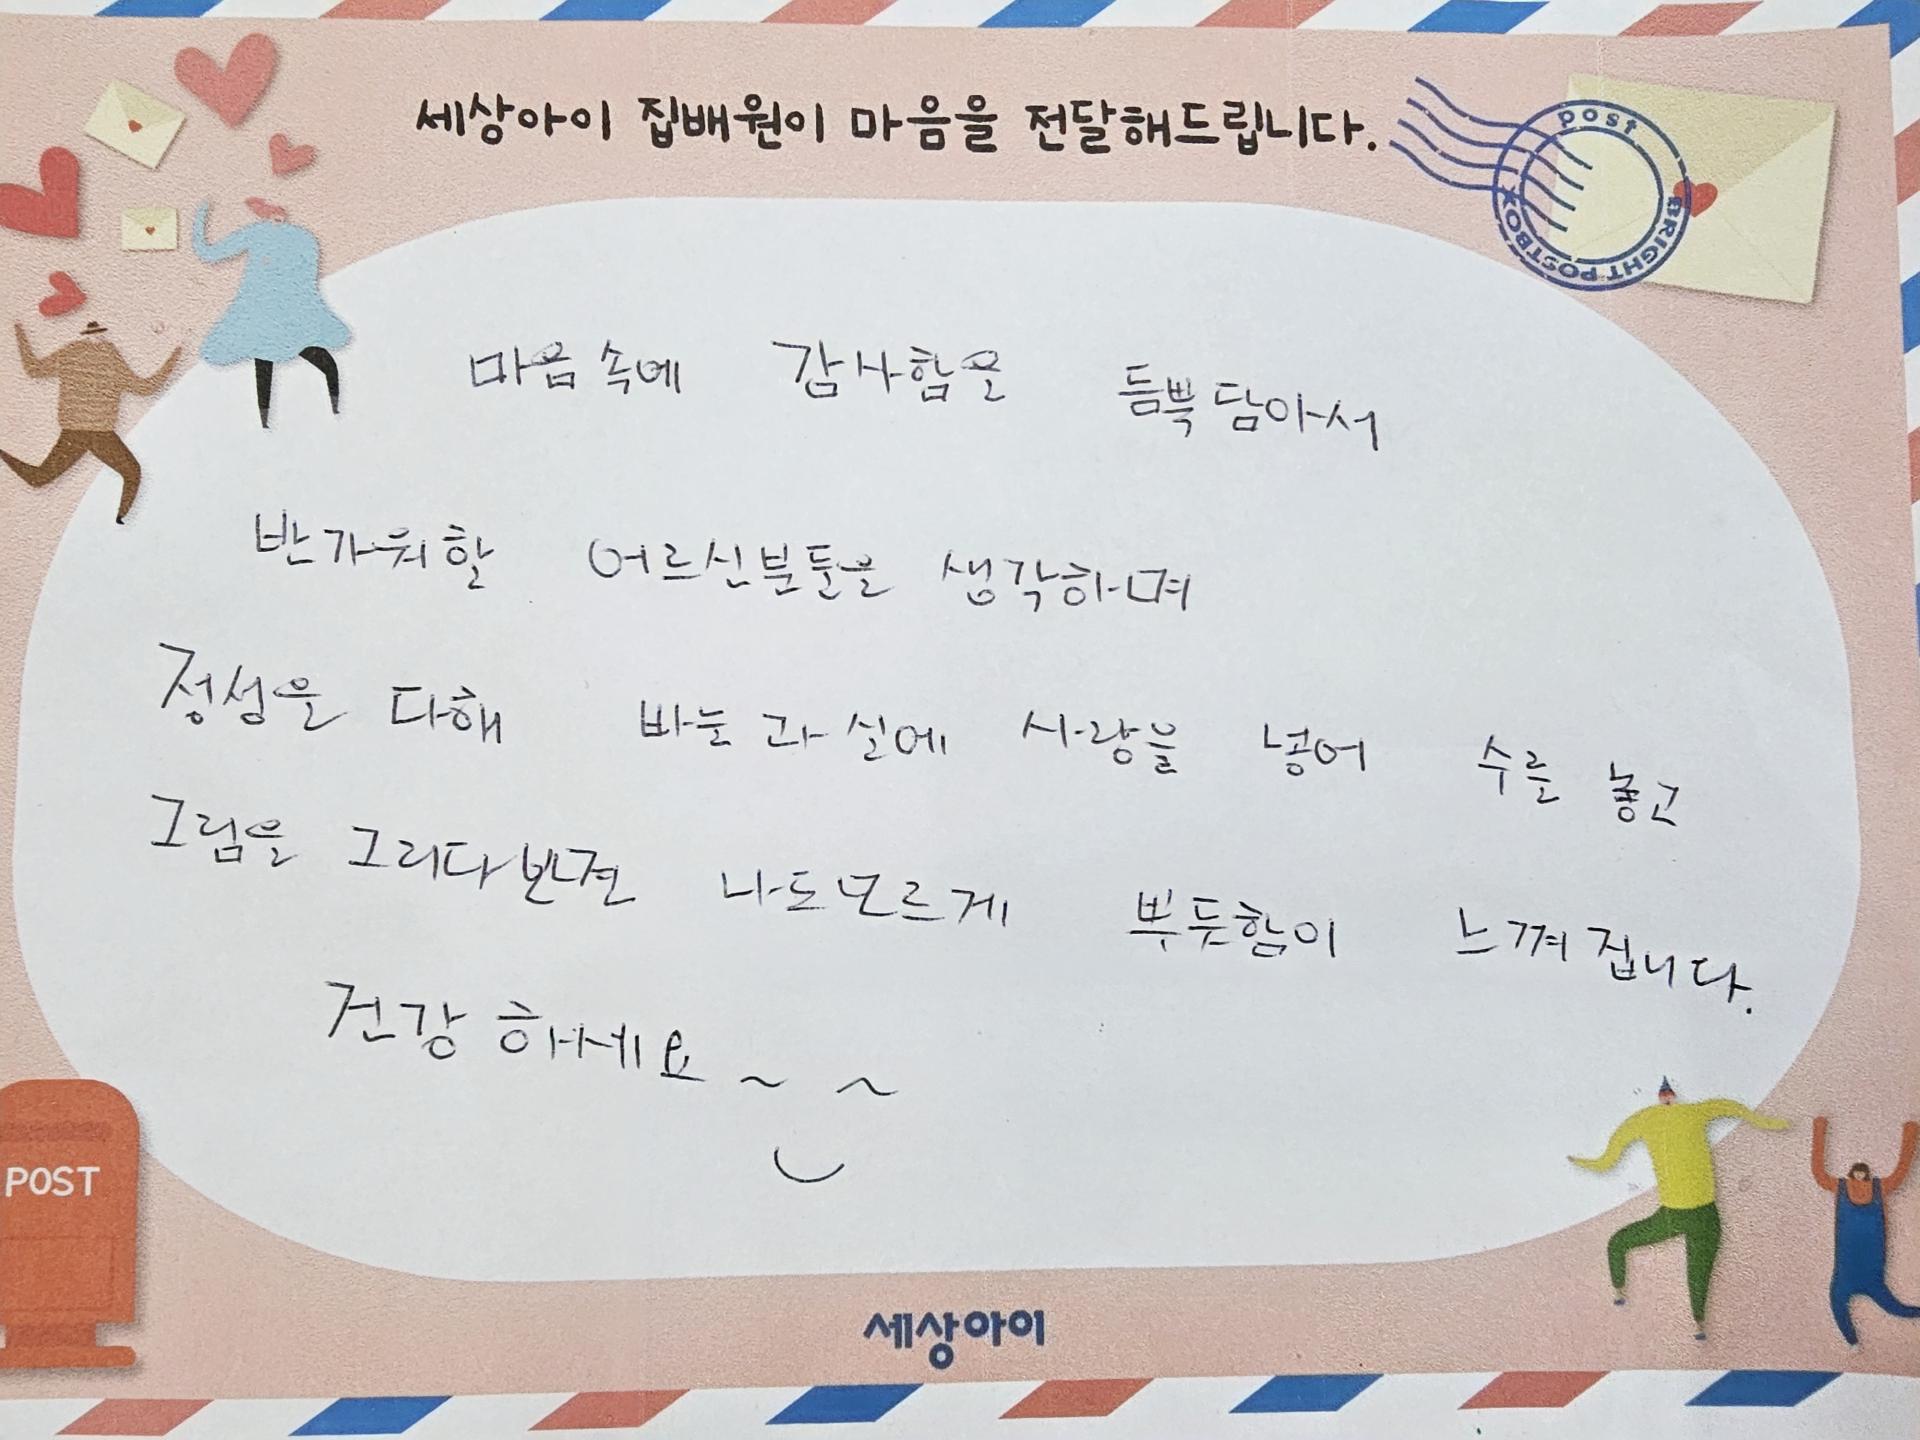 세상아이 집배원이 마음을 전달해드립니다.
post
BRIGHT POSTBOX
마음속에 감사함을 듬뿍 담아서
반가워할 어르신분들을 생각하며
정성을 다해 바늘과 실에 사랑을 넣어 수를 놓고
그림을 그리다보면 나도모르게 뿌듯함이 느껴집니다.
건강하세요~ ~
POST
세상아이